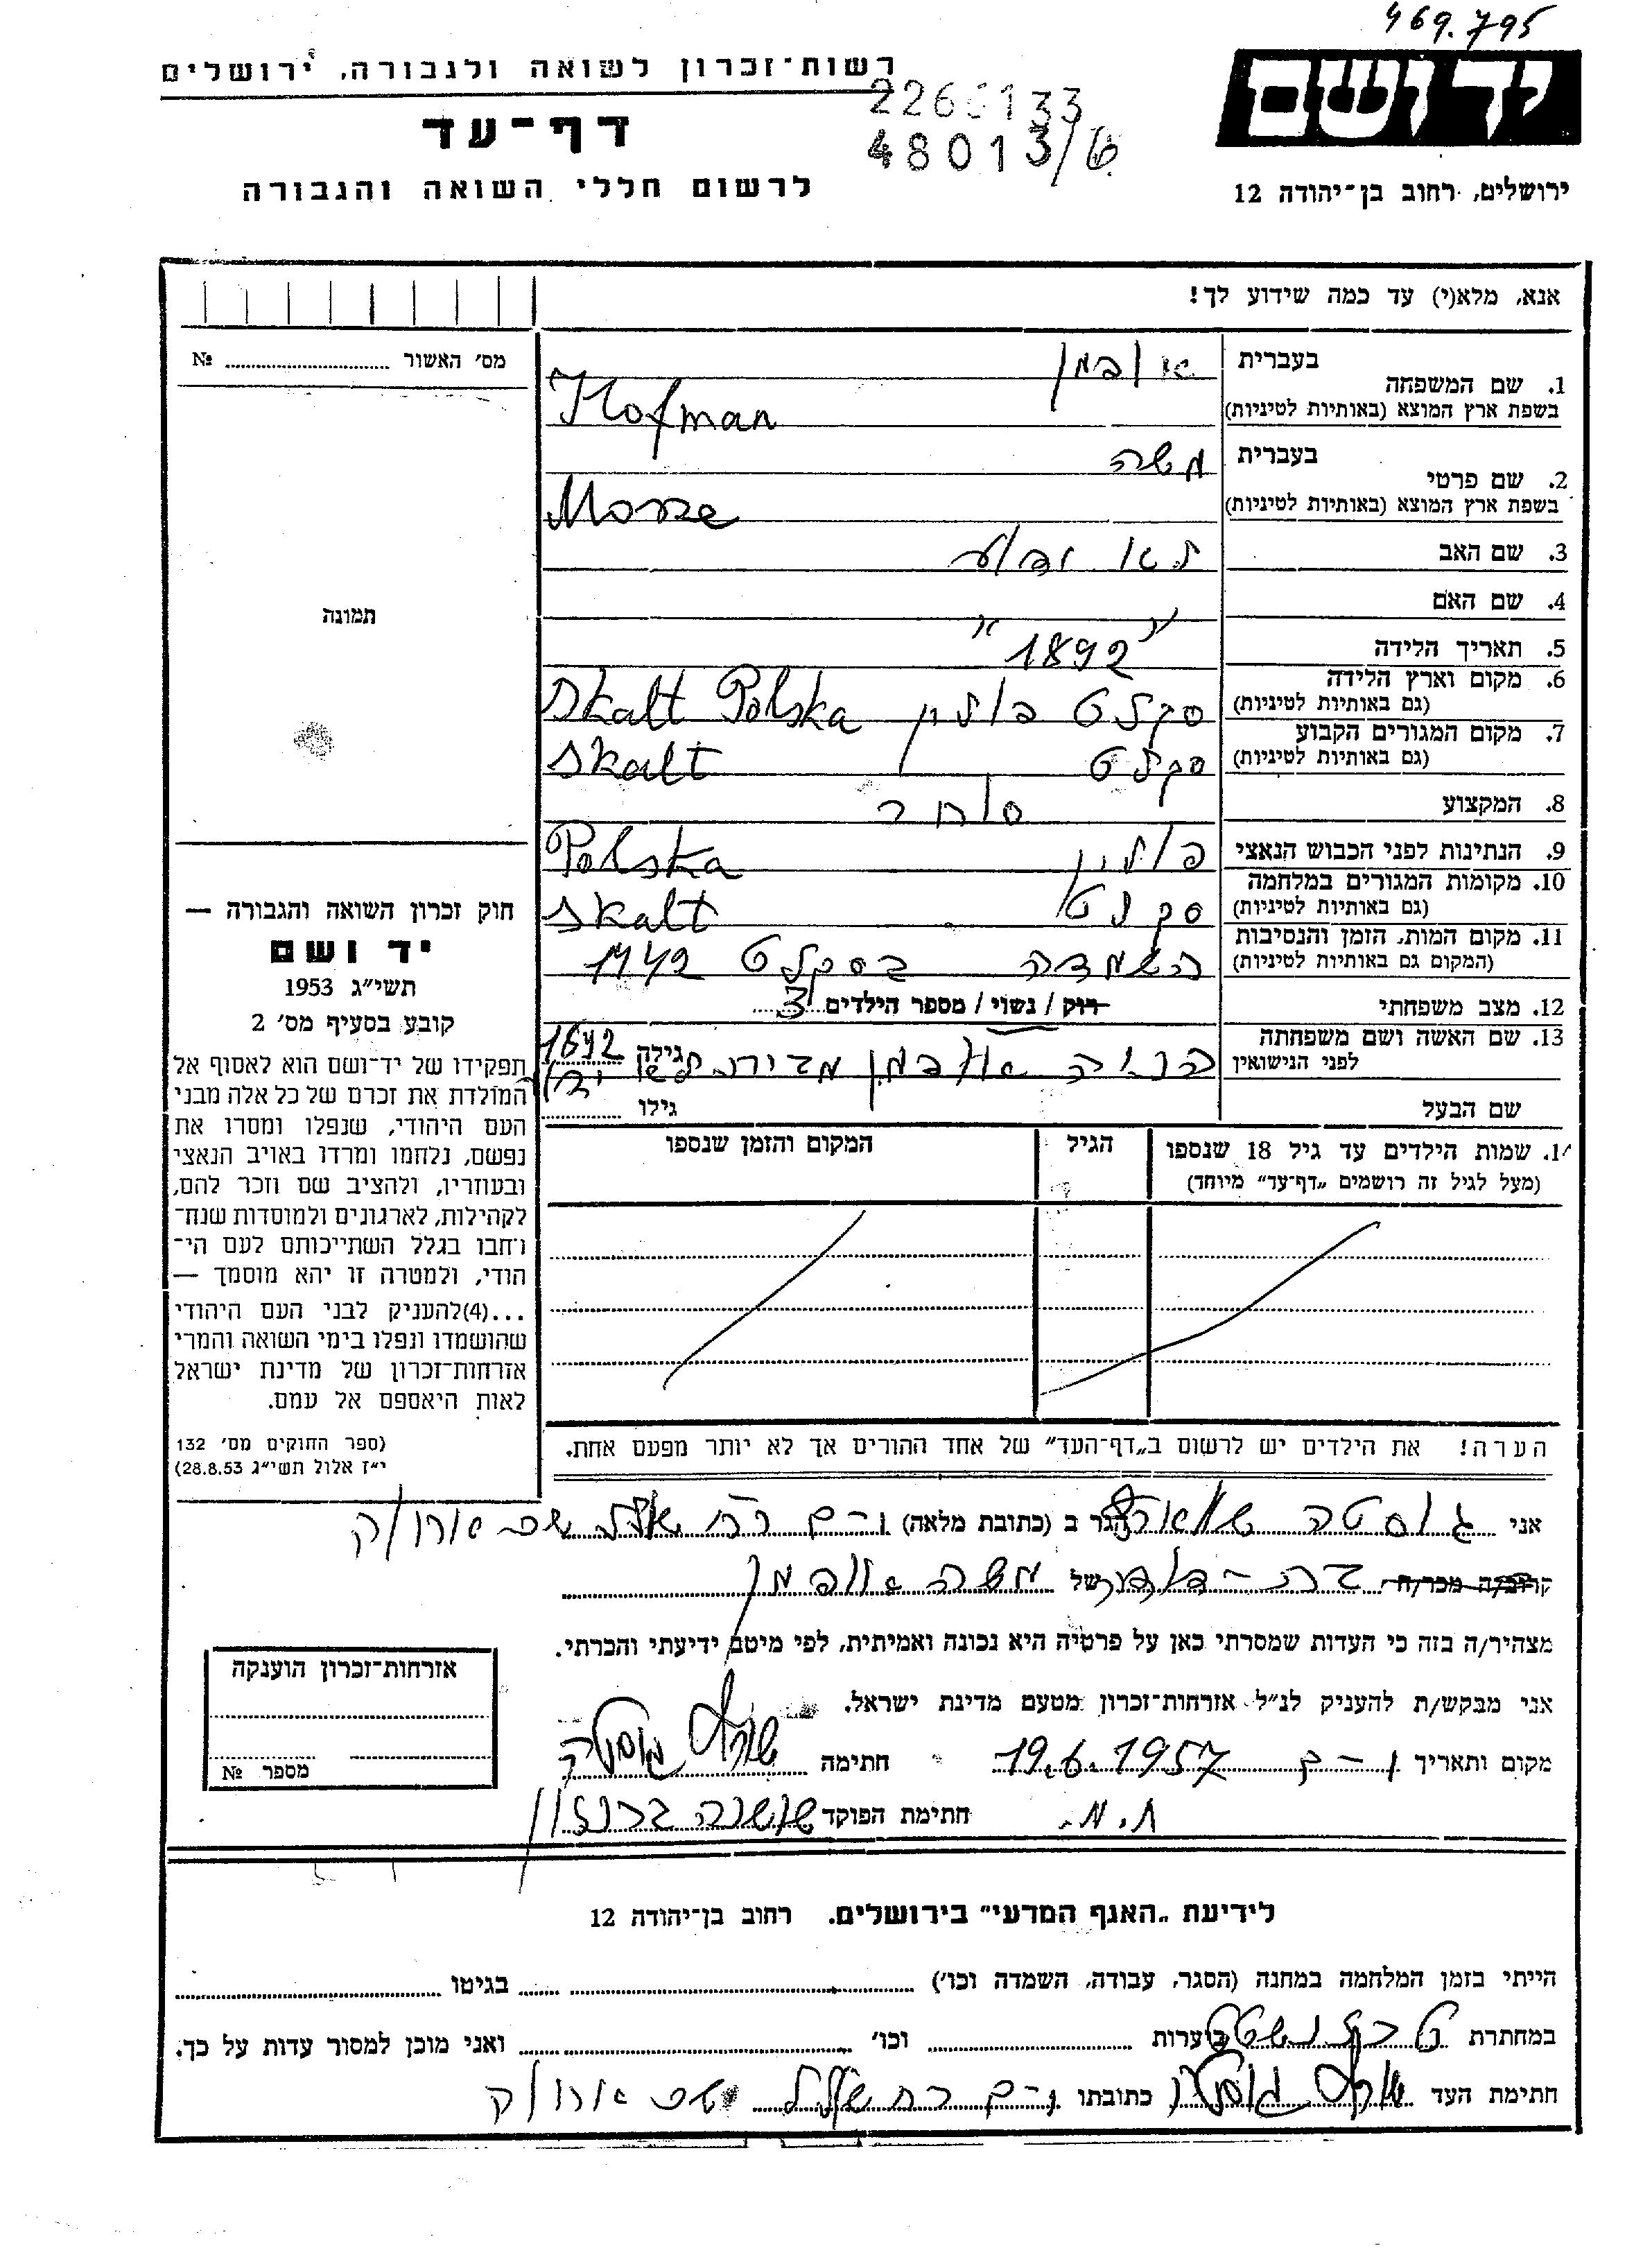 469.795
יד ושם
ירושלים, רחוב בן־יהודה 12
רשות־זכרון לשואה ולגבורה, ירושלים
דף־עד
לרשום חללי השואה והגבורה
48013/6
אנא, מלא(י) עד כמה שידוע לך!
מס׳ האשור № 
תמונה
1. שם המשפחה
בעברית
בשפת ארץ המוצא (באותיות לטיניות) Hofman
2. שם פרטי
בעברית משה
בשפת ארץ המוצא (באותיות לטיניות)
3. שם האב לא ידוע
4. שם האם
5. תאריך הלידה 1892
6. מקום וארץ הלידה
(גם באותיות לטיניות) סקלט פולין Skalt Polska
7. מקום המגורים הקבוע
(גם באותיות לטיניות) סקלט Skalt
8. המקצוע סוחר
9. הנתינות לפני הכבוש הנאצי פולין Polska
10. מקומות המגורים במלחמה
(גם באותיות לטיניות) סקלט Skalt
11. מקום המות, הזמן והנסיבות
(המקום גם באותיות לטיניות) השמדה בסקלט 1942
12. מצב משפחתי רוק / נשוי / מספר הילדים 3
13. שם האשה ושם משפחתה
לפני הנישואין גילה
שם הבעל גילו
14. שמות הילדים עד גיל 18 שנספו הגיל המקום והזמן שנספו
(מעל לגיל זה רושמים „דף־עד״ מיוחד)
הערה! את הילדים יש לרשום ב„דף־העד״ של אחד ההורים אך לא יותר מפעם אחת.
חוק זכרון השואה והגבורה —
יד ושם
תשי״ג 1953
קובע בסעיף מס׳ 2
תפקידו של יד־ושם הוא לאסוף אל
המולדת את זכרם של כל אלה מבני
העם היהודי, שנפלו ומסרו את
נפשם, נלחמו ומרדו באויב הנאצי
ובעוזריו, ולהציב שם וזכר להם,
לקהילות, לארגונים ולמוסדות שנח־
רחבו בגלל השתייכותם לעם הי־
הודי, ולמטרה זו יהא מוסמך —
...(4)להעניק לבני העם היהודי
שהושמדו ונפלו בימי השואה והמרי
אזרחות־זכרון של מדינת ישראל
לאות היאספם אל עמם.
(ספר החוקים מס׳ 132
י״ז אלול תשי״ג 28.8.53)
אני גוסטה הגר ב (כתובת מלאה)
קרוב/ה מכר/ה של משה
מצהיר/ה בזה כי העדות שמסרתי כאן על פרטיה היא נכונה ואמיתית, לפי מיטב ידיעתי והכרתי.
אני מבקש/ת להעניק לנ״ל אזרחות־זכרון מטעם מדינת ישראל.
מקום ותאריך 19.6.1957 חתימה
חתימת הפוקד שושנה
אזרחות־זכרון הוענקה
מספר №
לידיעת „האגף המדעי״ בירושלים, רחוב בן־יהודה 12
הייתי בזמן המלחמה במחנה (הסגר, עבודה, השמדה וכו׳) בגיטו
במחתרת ביערות וכו׳ ואני מוכן למסור עדות על כך.
חתימת העד כתובתו